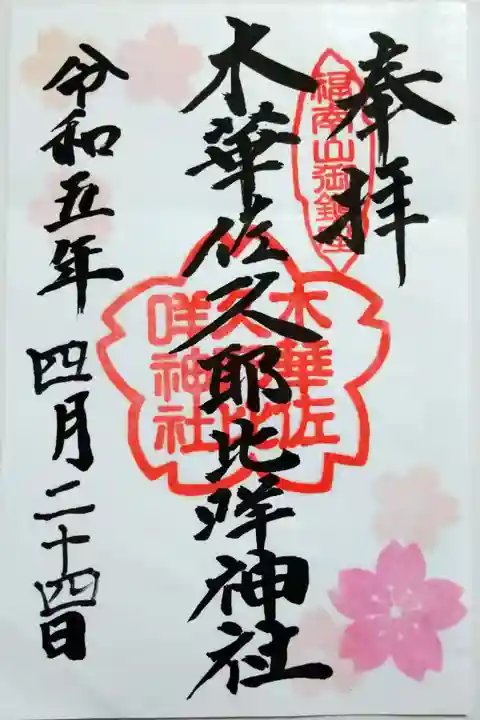 奉拝
福南山御鎮座
木華佐久耶比咩神社
木華佐
久耶比
咩神社
令和五年 四月二十四日